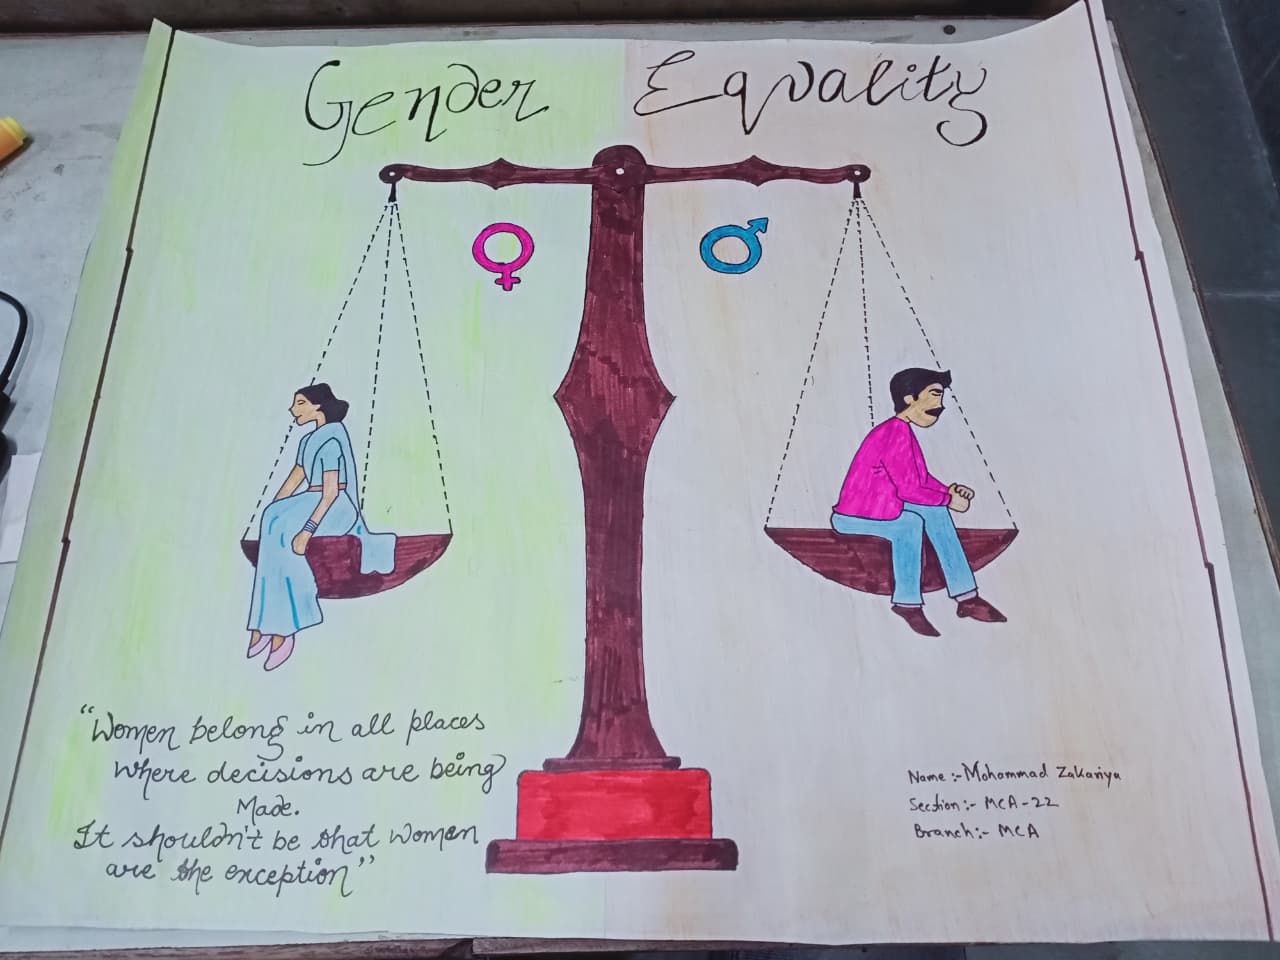 Gender Equality
"Women belong in all places
where decisions are being
Made.
It shouldn't be that women
are the exception"
Name :- Mohammad Zakariya
Section :- MCA-22
Branch :- MCA